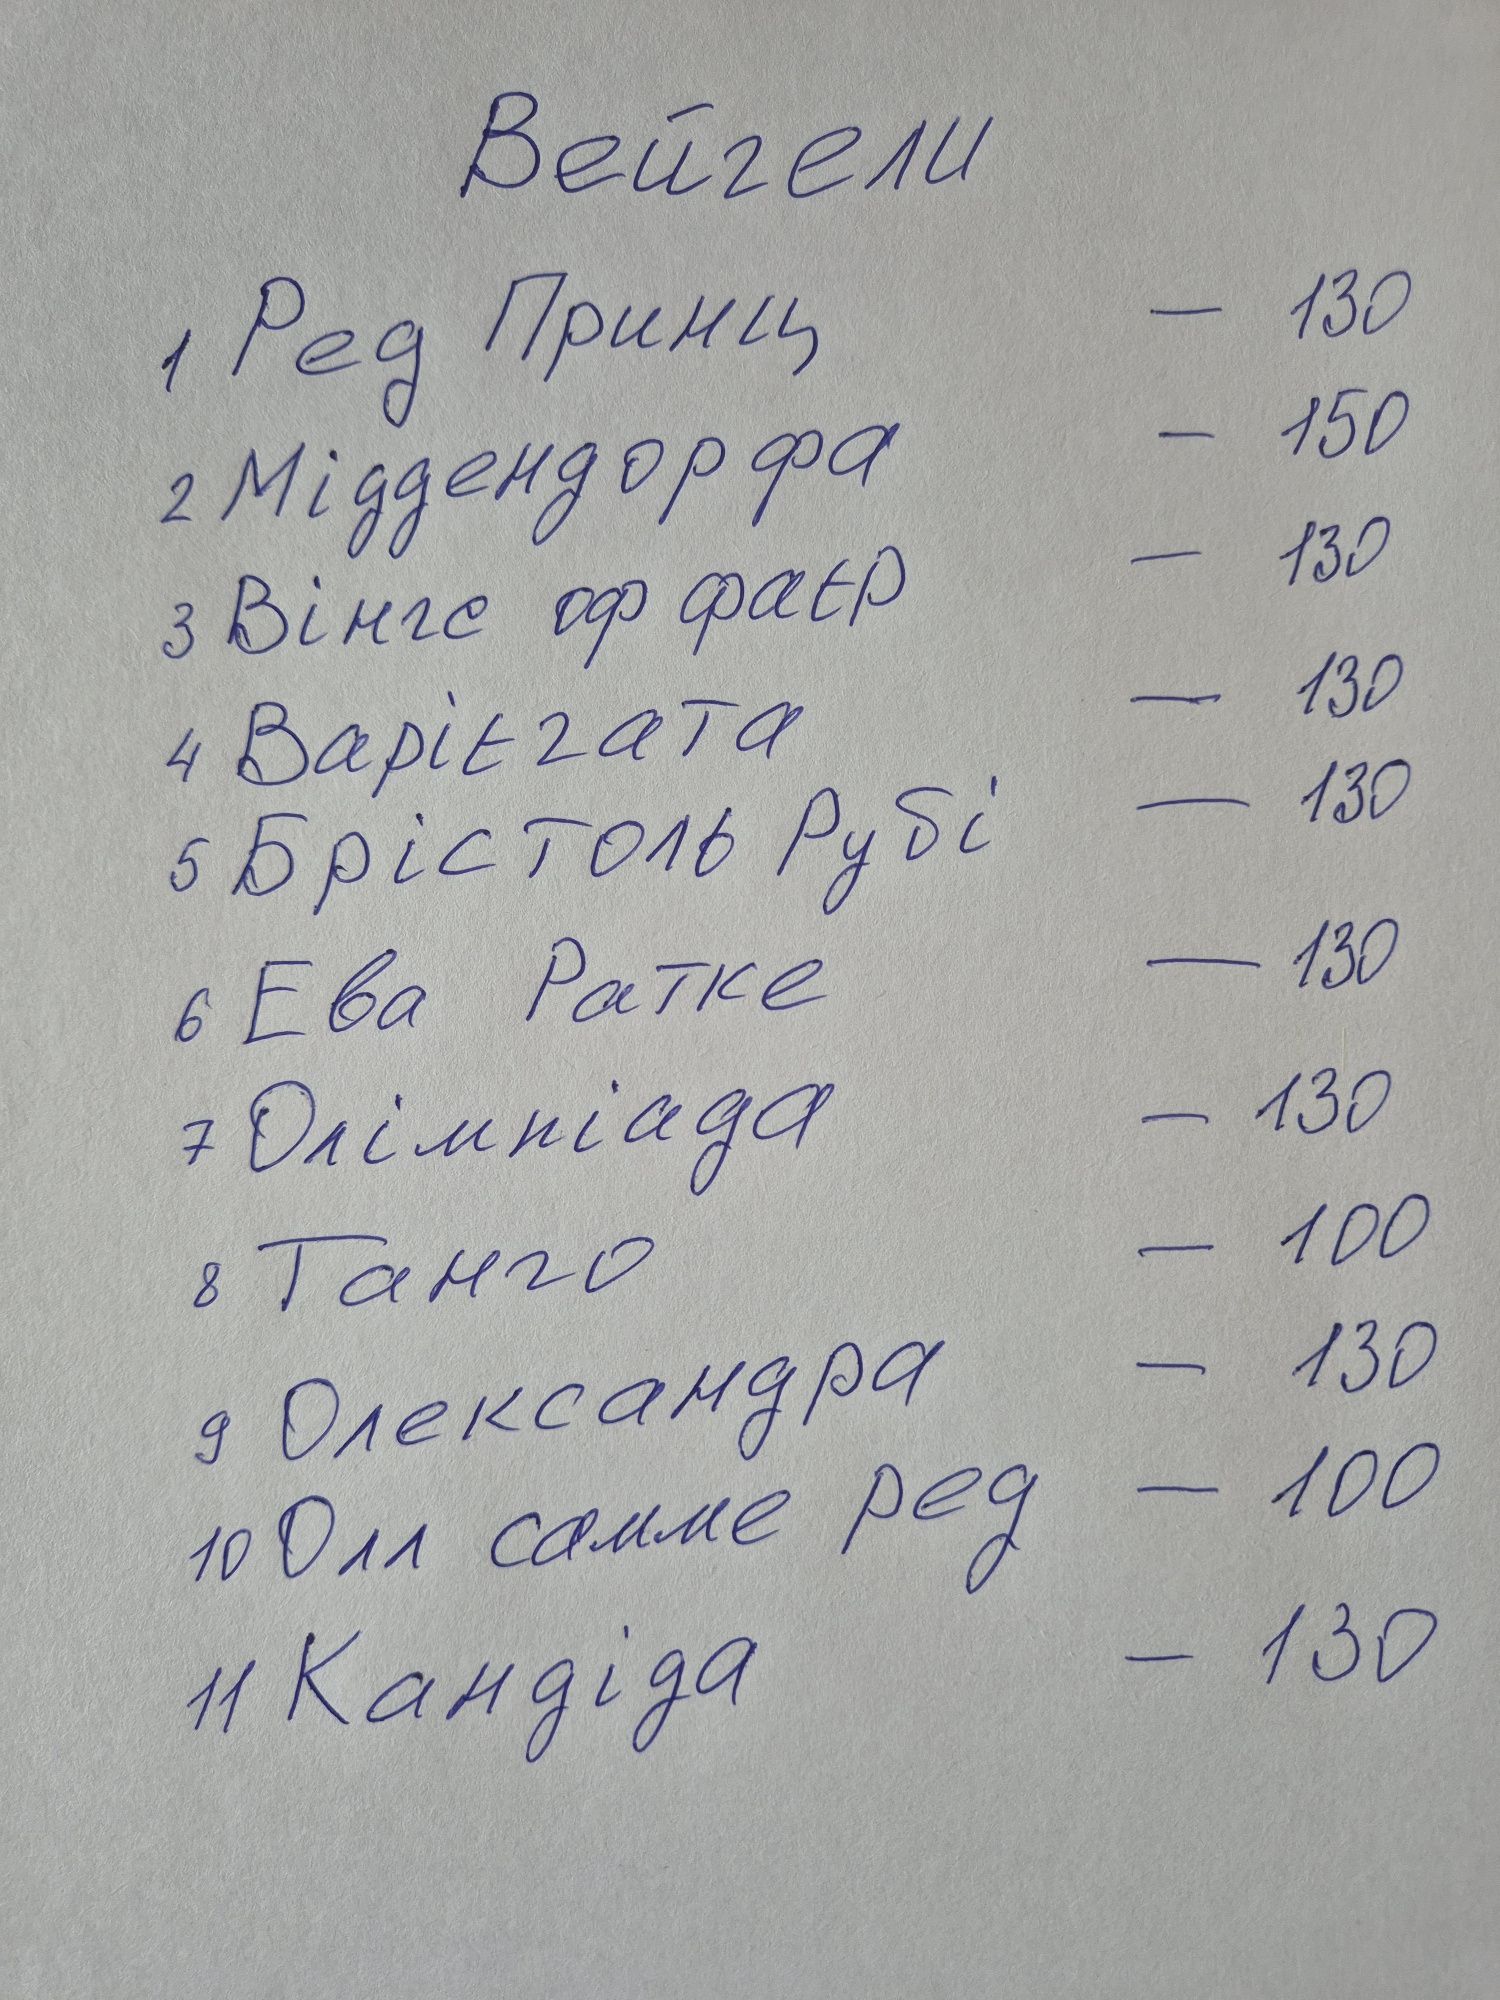 Вейгели
1 Ред Принц — 130
2 Міддендорфа — 150
3 Вінгс оф фаєр — 130
4 Варієгата — 130
5 Брістоль Рубі — 130
6 Ева Ратке — 130
7 Олімпіада — 130
8 Танго — 100
9 Олександра — 130
10 Олл самме ред — 100
11 Кандіда — 130